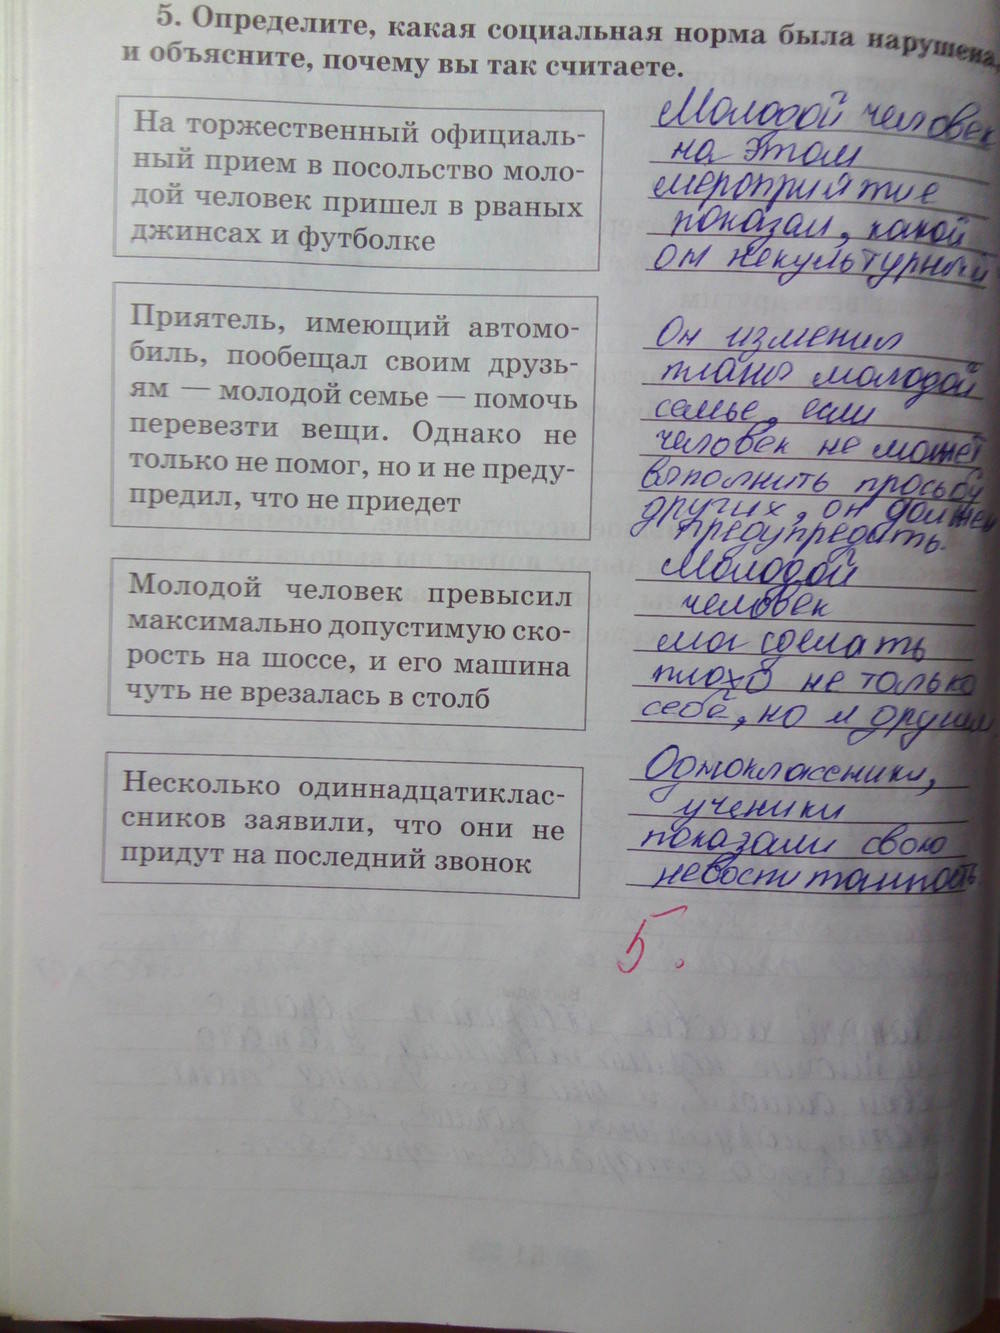 5. Определите, какая социальная норма была нарушена,
и объясните, почему вы так считаете.
На торжественный официаль-
ный прием в посольство моло-
дой человек пришел в рваных
джинсах и футболке
Молодой человек
на этом
мероприятие
показал, какой
он некультурный
Приятель, имеющий автомо-
биль, пообещал своим друзь-
ям — молодой семье — помочь
перевезти вещи. Однако не
только не помог, но и не преду-
предил, что не приедет
Он изменил
планы молодой
семье, если
человек не может
выполнить просьбу
других, он должен
предупредить.
Молодой человек превысил
максимально допустимую ско-
рость на шоссе, и его машина
чуть не врезалась в столб
Молодой
человек
мог сделать
плохо не только
себе, но и другим
Несколько одиннадцатиклас-
сников заявили, что они не
придут на последний звонок
Одноклассники,
ученики
показали свою
невоспитанность
5.